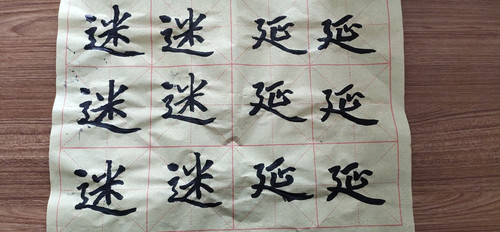 迷迷延延
迷迷延延
迷迷延延